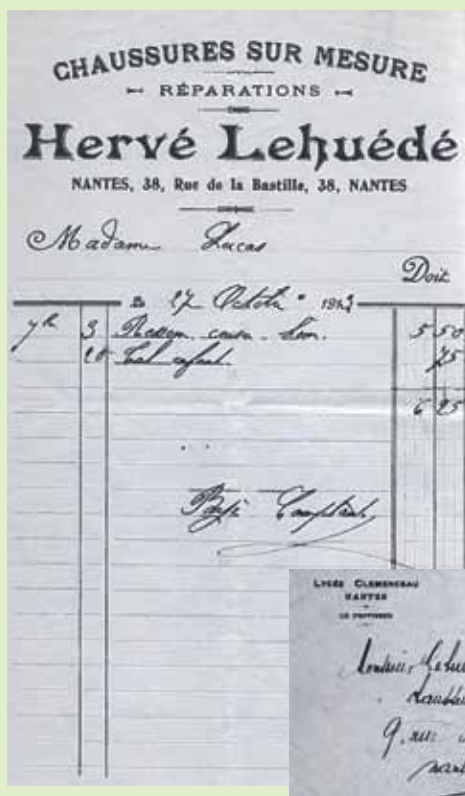 CHAUSSURES SUR MESURE
RÉPARATIONS
Hervé Lehuédé
NANTES, 38, Rue de la Bastille, 38, NANTES
Madame Lucas
Doit
le 27 Octobre 19
3 Ressem. 5 50
Tal. enfant. 75
6 25
Payé Comptant
LYCÉE CLEMENCEAU
NANTES
LE PROVISEUR
Monsieur Lehu
9, rue